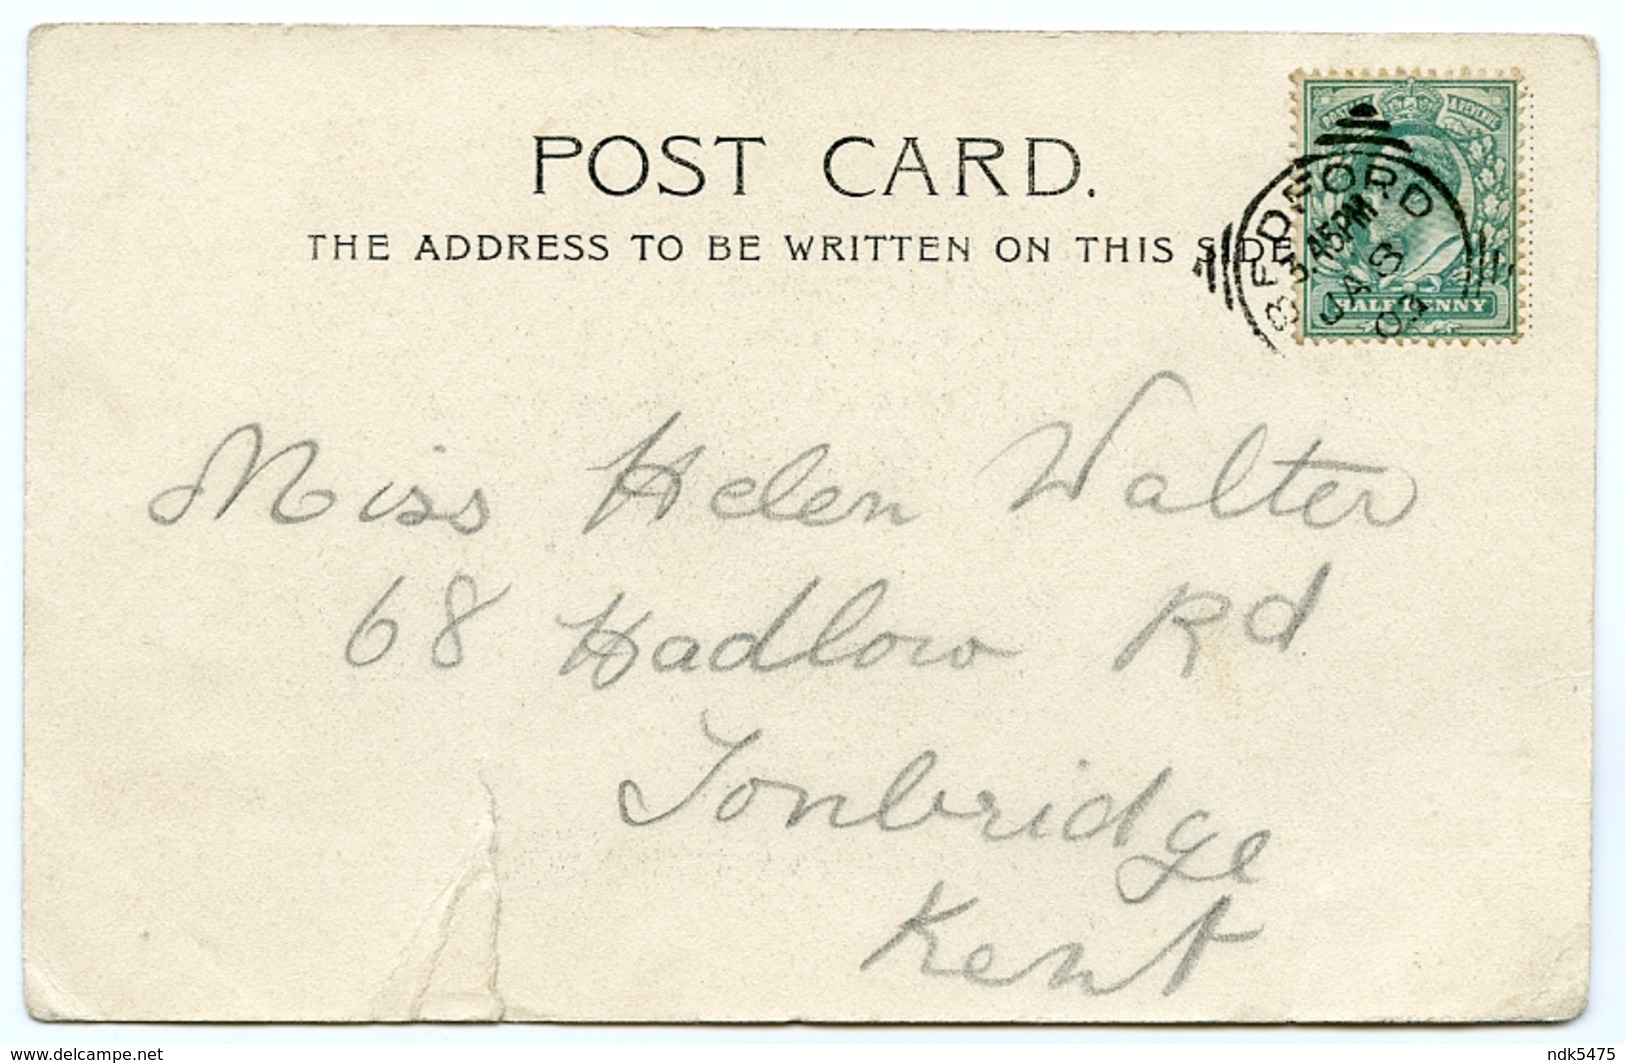 POST CARD.
THE ADDRESS TO BE WRITTEN ON THIS SIDE
BEDFORD
3.45PM
JA 8
03
POSTAGE & REVENUE
HALF PENNY
Miss Helen Walter
68 Hadlow Rd
Tonbridge
Kent
www.delcampe.net
ndk5475